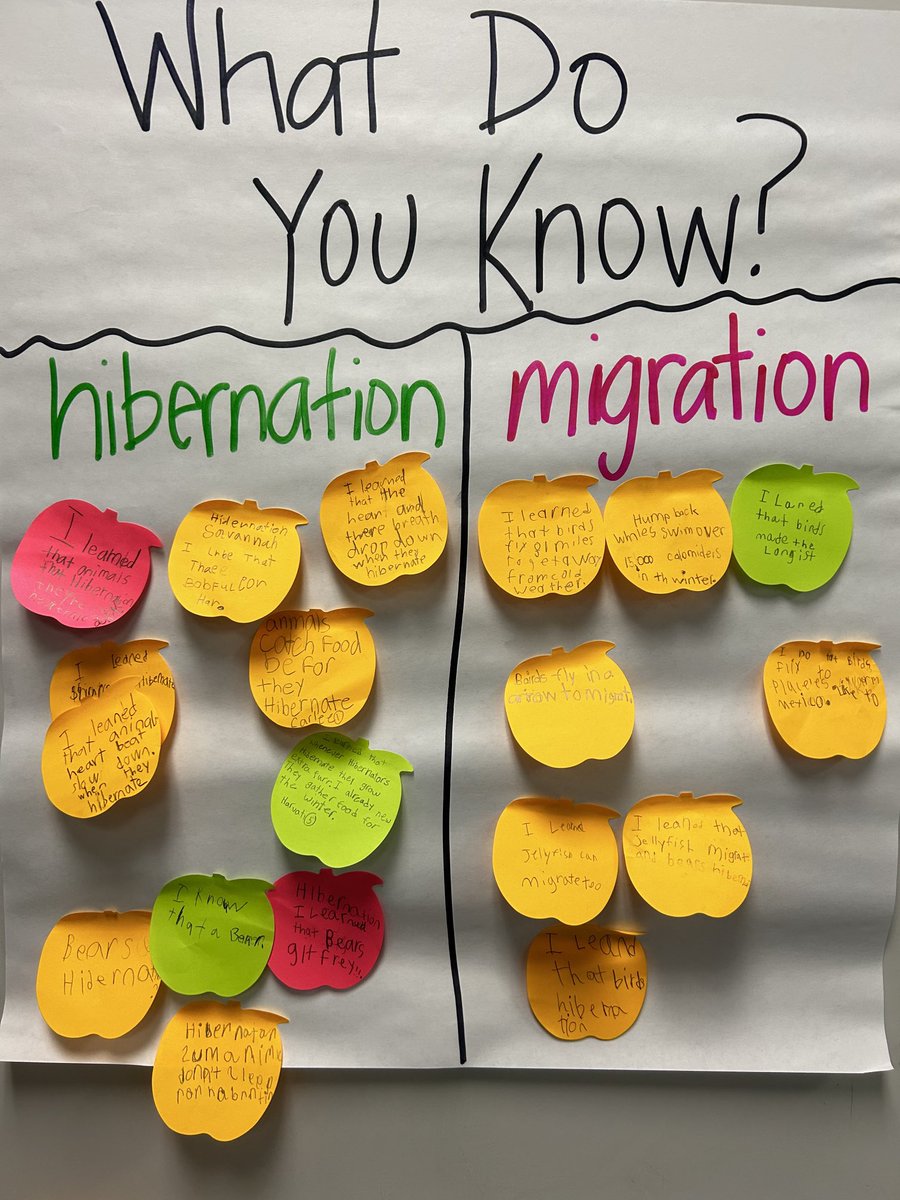 What Do
You Know?
hibernation
I learned
that animals
that hibernation
Hidernation
Savannah
I
That
I learned
that the
heart and
there breath
drop down
when they
hibernate
I leaned
hibernate
I leaned
that animal
heart beat
slow down.
when they
hibernate
animals
Catch Food
be for
they
Hibernate
I learned that
whenever hibernators
hibernate they grow
extra furr. I already new
they gather food for
the winter.
Bears
Hidernat
I know
that a Bear.
Hibernation
I Learned
that Bears
git frey!!
Hibernatan
zum a nimls
don't sleep
migration
I learned
that birds
fly 81 miles
to get away
from cold
weather.
Hump back
whales swim over
15,000
in th winter.
I Lared
that birds
made the
Longist
Bairds fly in a
arrow to migrat.
I no that birds
Fliy to
like to
metico.
I Leand
Jellyfish can
migrate too
I leand that
jellyfish migrat
and bears hiberna
I Leand
that birds
hiberna
tion